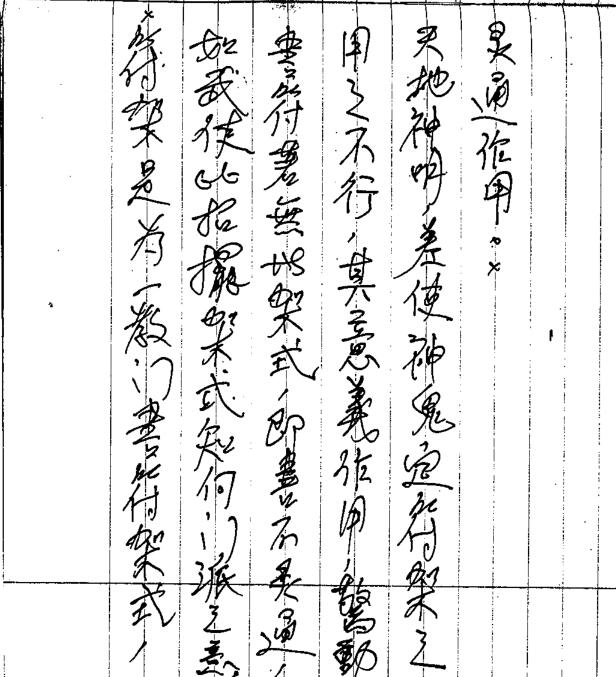 ×符架是为一教门書符架式，
如武使此招擺架式知何门派之意
書符若無此架式，即書不灵通，
用之不行，其意義作用，驚動
天地神明，差使神鬼定符架之
灵通作用。×